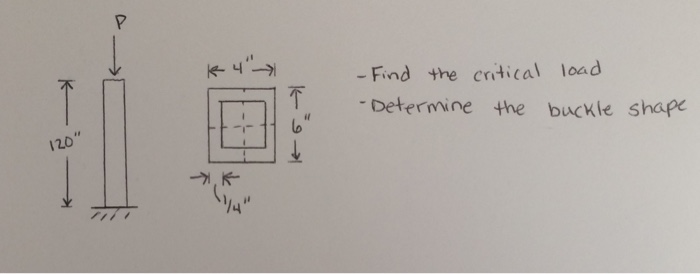 P
4"
- Find the critical load
- Determine the buckle shape
6"
120"
1/4"